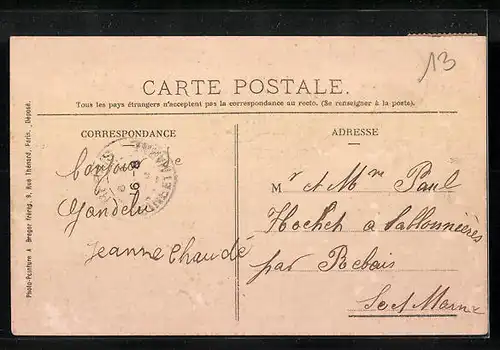 13
CARTE POSTALE.
Tous les pays étrangers n'acceptent pas la correspondance au recto. (Se renseigner à la poste).
CORRESPONDANCE
ADRESSE
bonjour de
Gandelu
Jeanne Chaudé
Mr et Mme Paul
Hochet à Sablonnières
par Rebais
Se et Marne
Photo-Peinture A Breger Frères, 9, Rue Thénard, Paris. _Déposé.